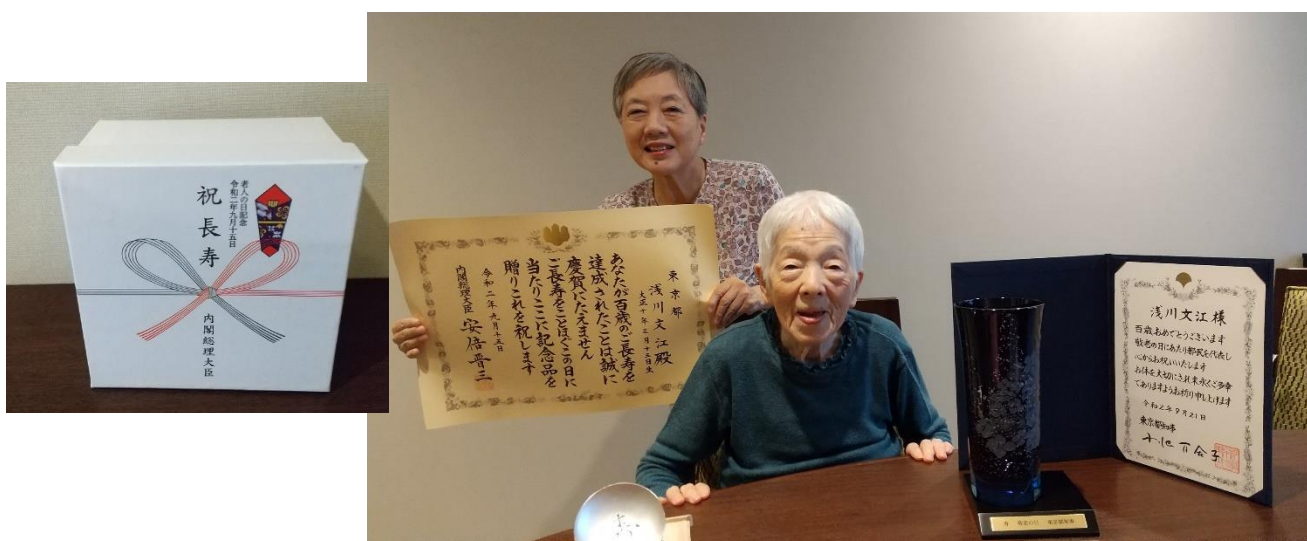 老人の日記念
令和二年九月十五日
祝長寿
内閣総理大臣
東京都
浅川文江殿
大正十年三月十三日生
あなたが百歳のご長寿を
達成されたことは誠に
慶賀にたえません
ご長寿をことほぐこの日に
当たりここに記念品を
贈りこれを祝します
令和二年九月十五日
内閣総理大臣 安倍晋三
浅川文江様
百歳おめでとうございます
敬老の日にあたり都民を代表し
心からお祝いいたします
お体を大切にされ末永くご多幸
でありますようお祈り申し上げます
令和2年9月21日
東京都知事
小池百合子
寿 敬老の日 東京都知事